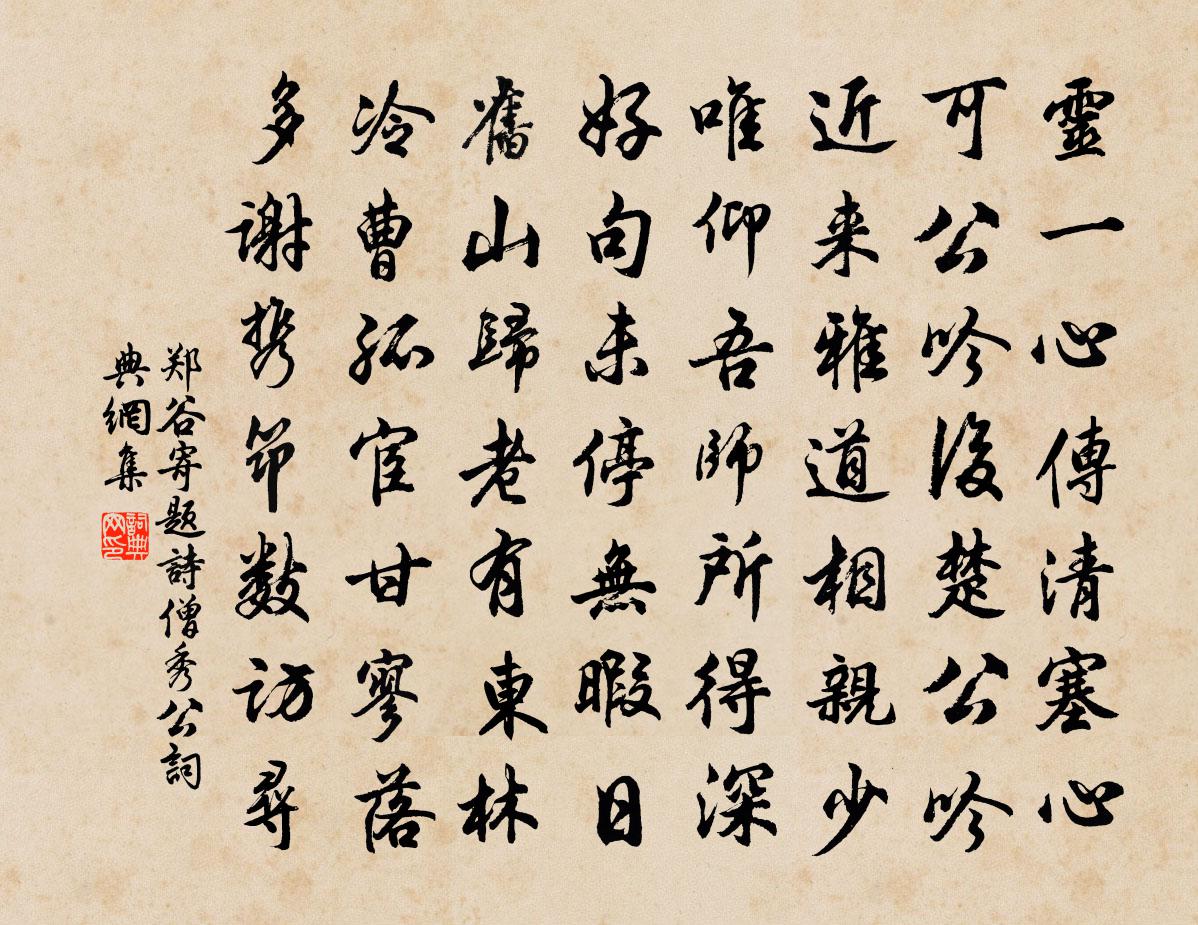 靈一心傳清塞心
可公吟後楚公吟
近来雅道相親少
唯仰吾師所得深
好句未停無暇日
舊山歸老有東林
冷曹孤宦甘寥落
多謝携筇數訪尋
郑谷寄题詩僧秀公詞
典網集
詞典
网印